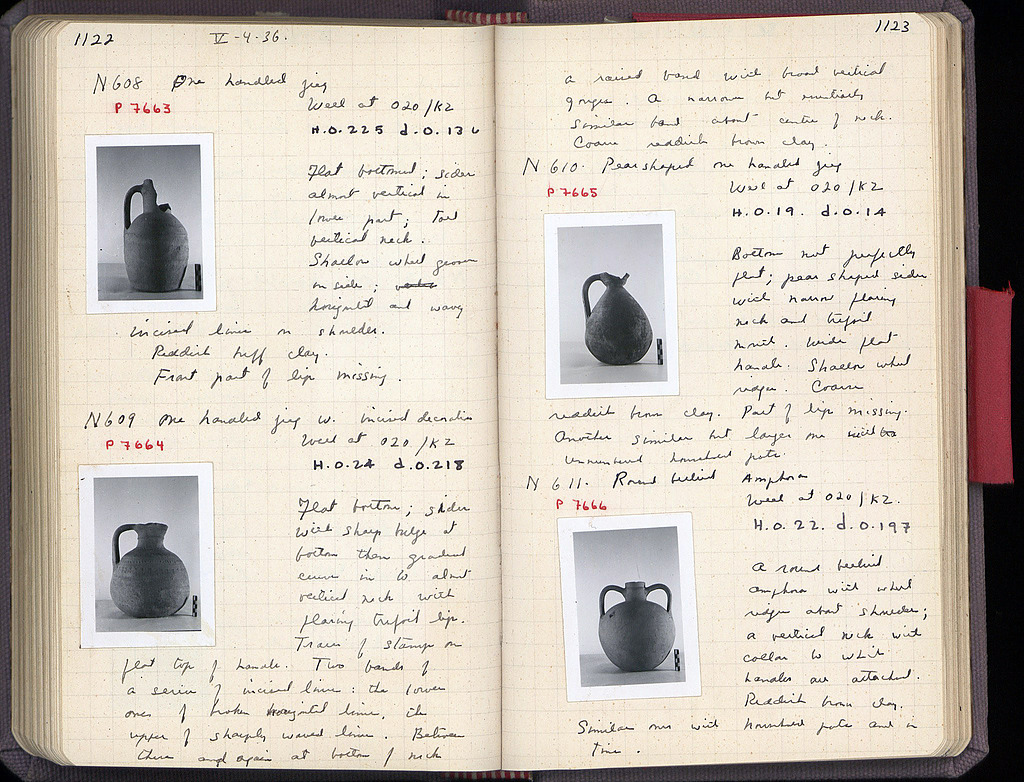 1122
V-4-36.
N608 One handled jug
P 7663
Well at O20/K2
H.0.225 d.0.136
Flat bottomed; sides
almost vertical in
lower part; Tall
vertical neck.
Shallow wheel grooves
on side;
horizontal and wavy
incised lines on shoulder.
Reddish buff clay.
Front part of lip missing.
N609 One handled jug w. incised decoration
P 7664
Well at O20/K2
H.0.24 d.0.218
Flat bottom; sides
with sharp bulge at
bottom then gradual
curve in to almost
vertical neck with
flaring trefoil lip.
Traces of stamp on
flat top of handle. Two bands of
a series of incised lines: the lower
ones of broken horizontal lines, the
upper of sharply waved lines. Between
them and again at bottom of neck
1123
a raised band with broad vertical
gouges. A narrow but
similar band about centre of neck.
Coarse reddish brown clay.
N 610. Pear shaped one handled jug
P 7665
Well at O20/K2
H.0.19. d.0.14
Bottom not perfectly
flat; pear shaped sides
with narrow flaring
neck and trefoil
mouth. Wide flat
handle. Shallow wheel
ridges. Coarse
reddish brown clay. Part of lip missing.
Another similar but larger one
unnumbered household pots.
N 611. Round bellied Amphora
P 7666
Well at O20/K2.
H.0.22. d.0.197
A round bellied
amphora with wheel
ridges about shoulder;
a vertical neck with
collar to which
handles are attached.
Reddish brown clay.
Similar ones with household pots and in
tins.